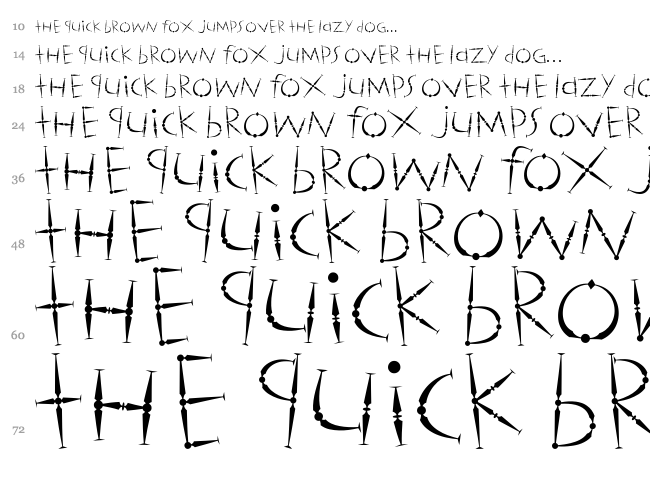 10 tHE quicK bROWN foX jUMPS OVER tHE lAZY dOG...
14 tHE quicK bROWN foX jUMPS OVER tHE lAZY dOG...
18 tHE quicK bROWN foX jUMPS OVER tHE lAZY dO
24 tHE quicK bROWN foX jUMPS OVER
36 tHE quicK bROWN foX j
48 tHE quicK bROWN
60 tHE quicK bRO
72 tHE quicK bR